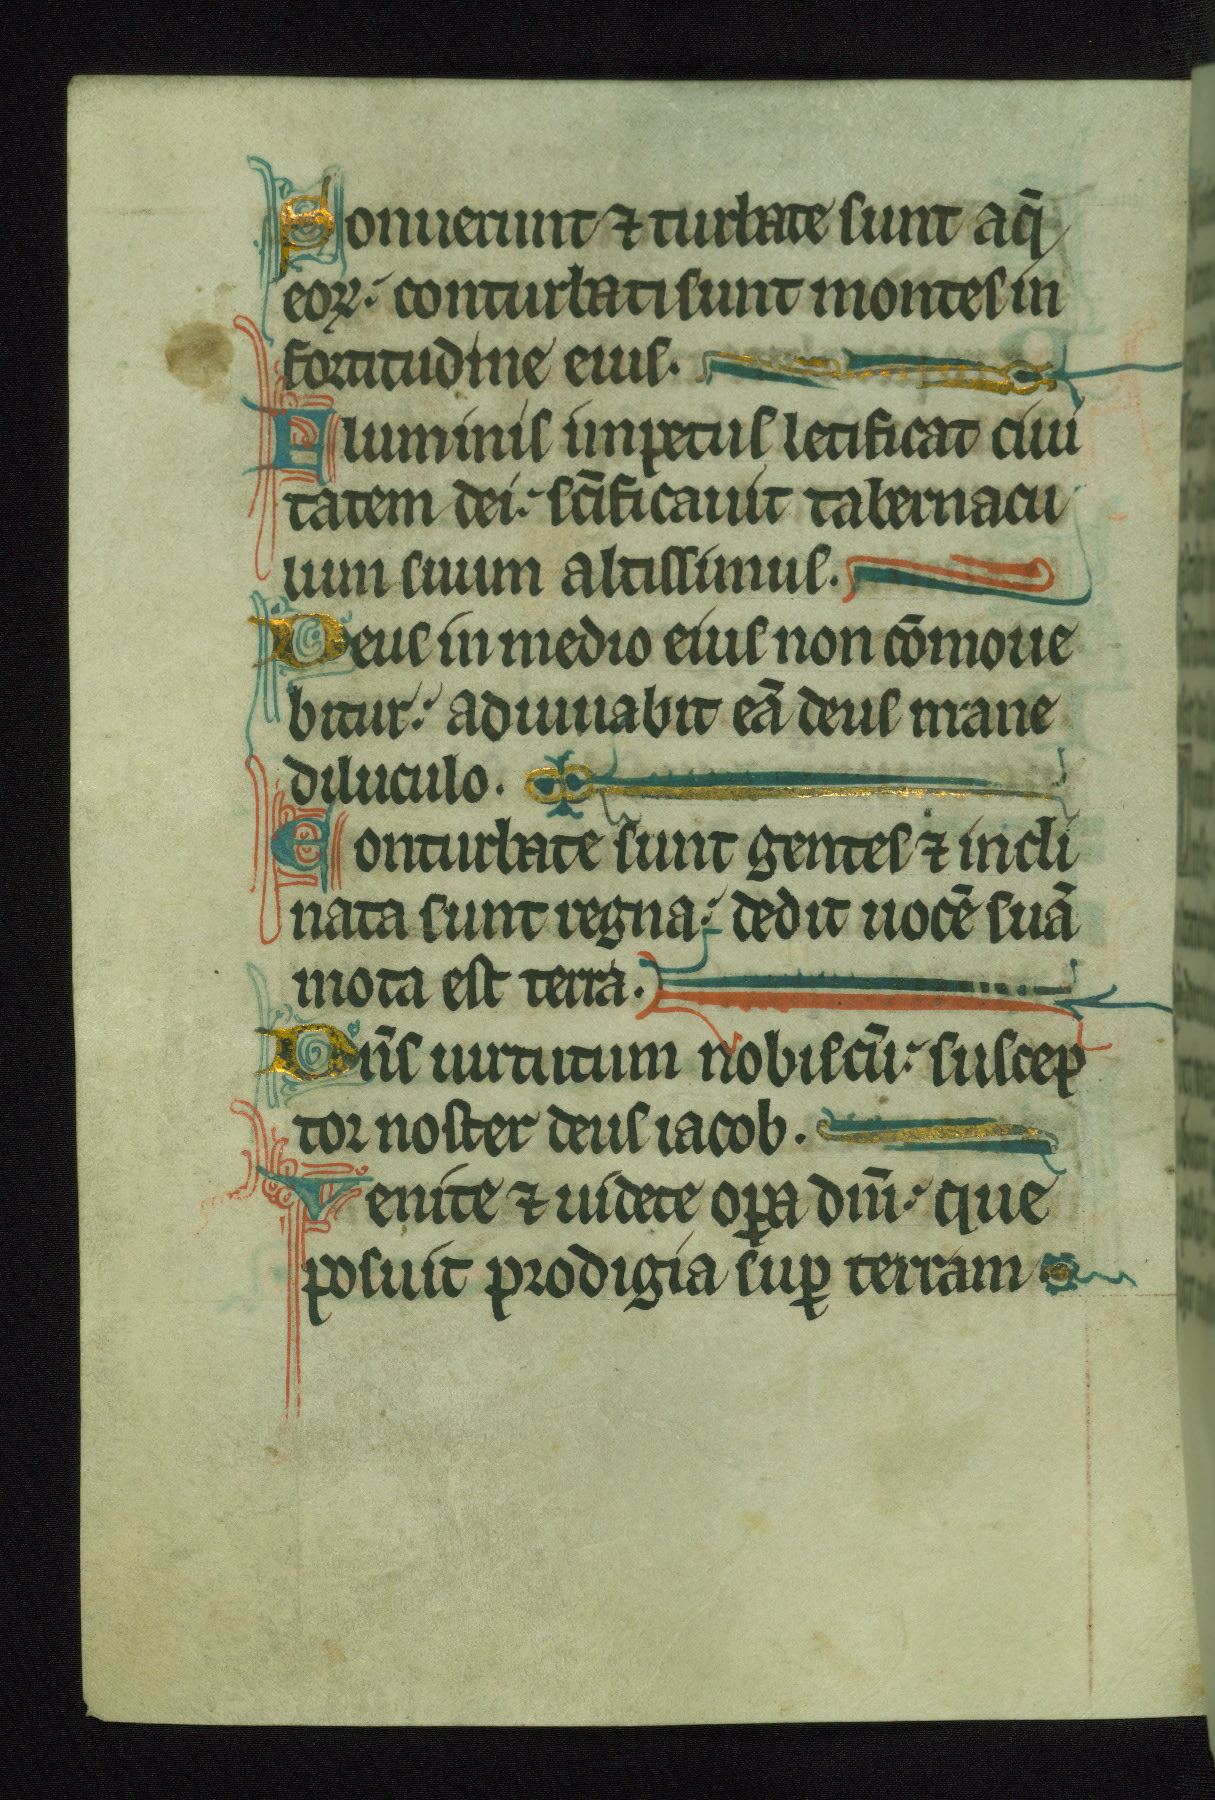 Sonuerunt ⁊ turbate sunt aq̄
eoꝝ: conturbati sunt montes in
fortitudine eius.
Fluminis impetus letificat ciui
tatem dei: sc̄ificauit tabernacu
lum suum altissimus.
Deus in medio eius non cōmoue
bitur: adiuuabit eā deus mane
diluculo.
Conturbate sunt gentes ⁊ incli
nata sunt regna: dedit uocē suā
mota est terra.
Dn̄s uirtutum nobiscū: suscep
tor noster deus iacob.
Venite ⁊ uidete oꝑa dn̄i: que
posuit prodigia suꝑ terram